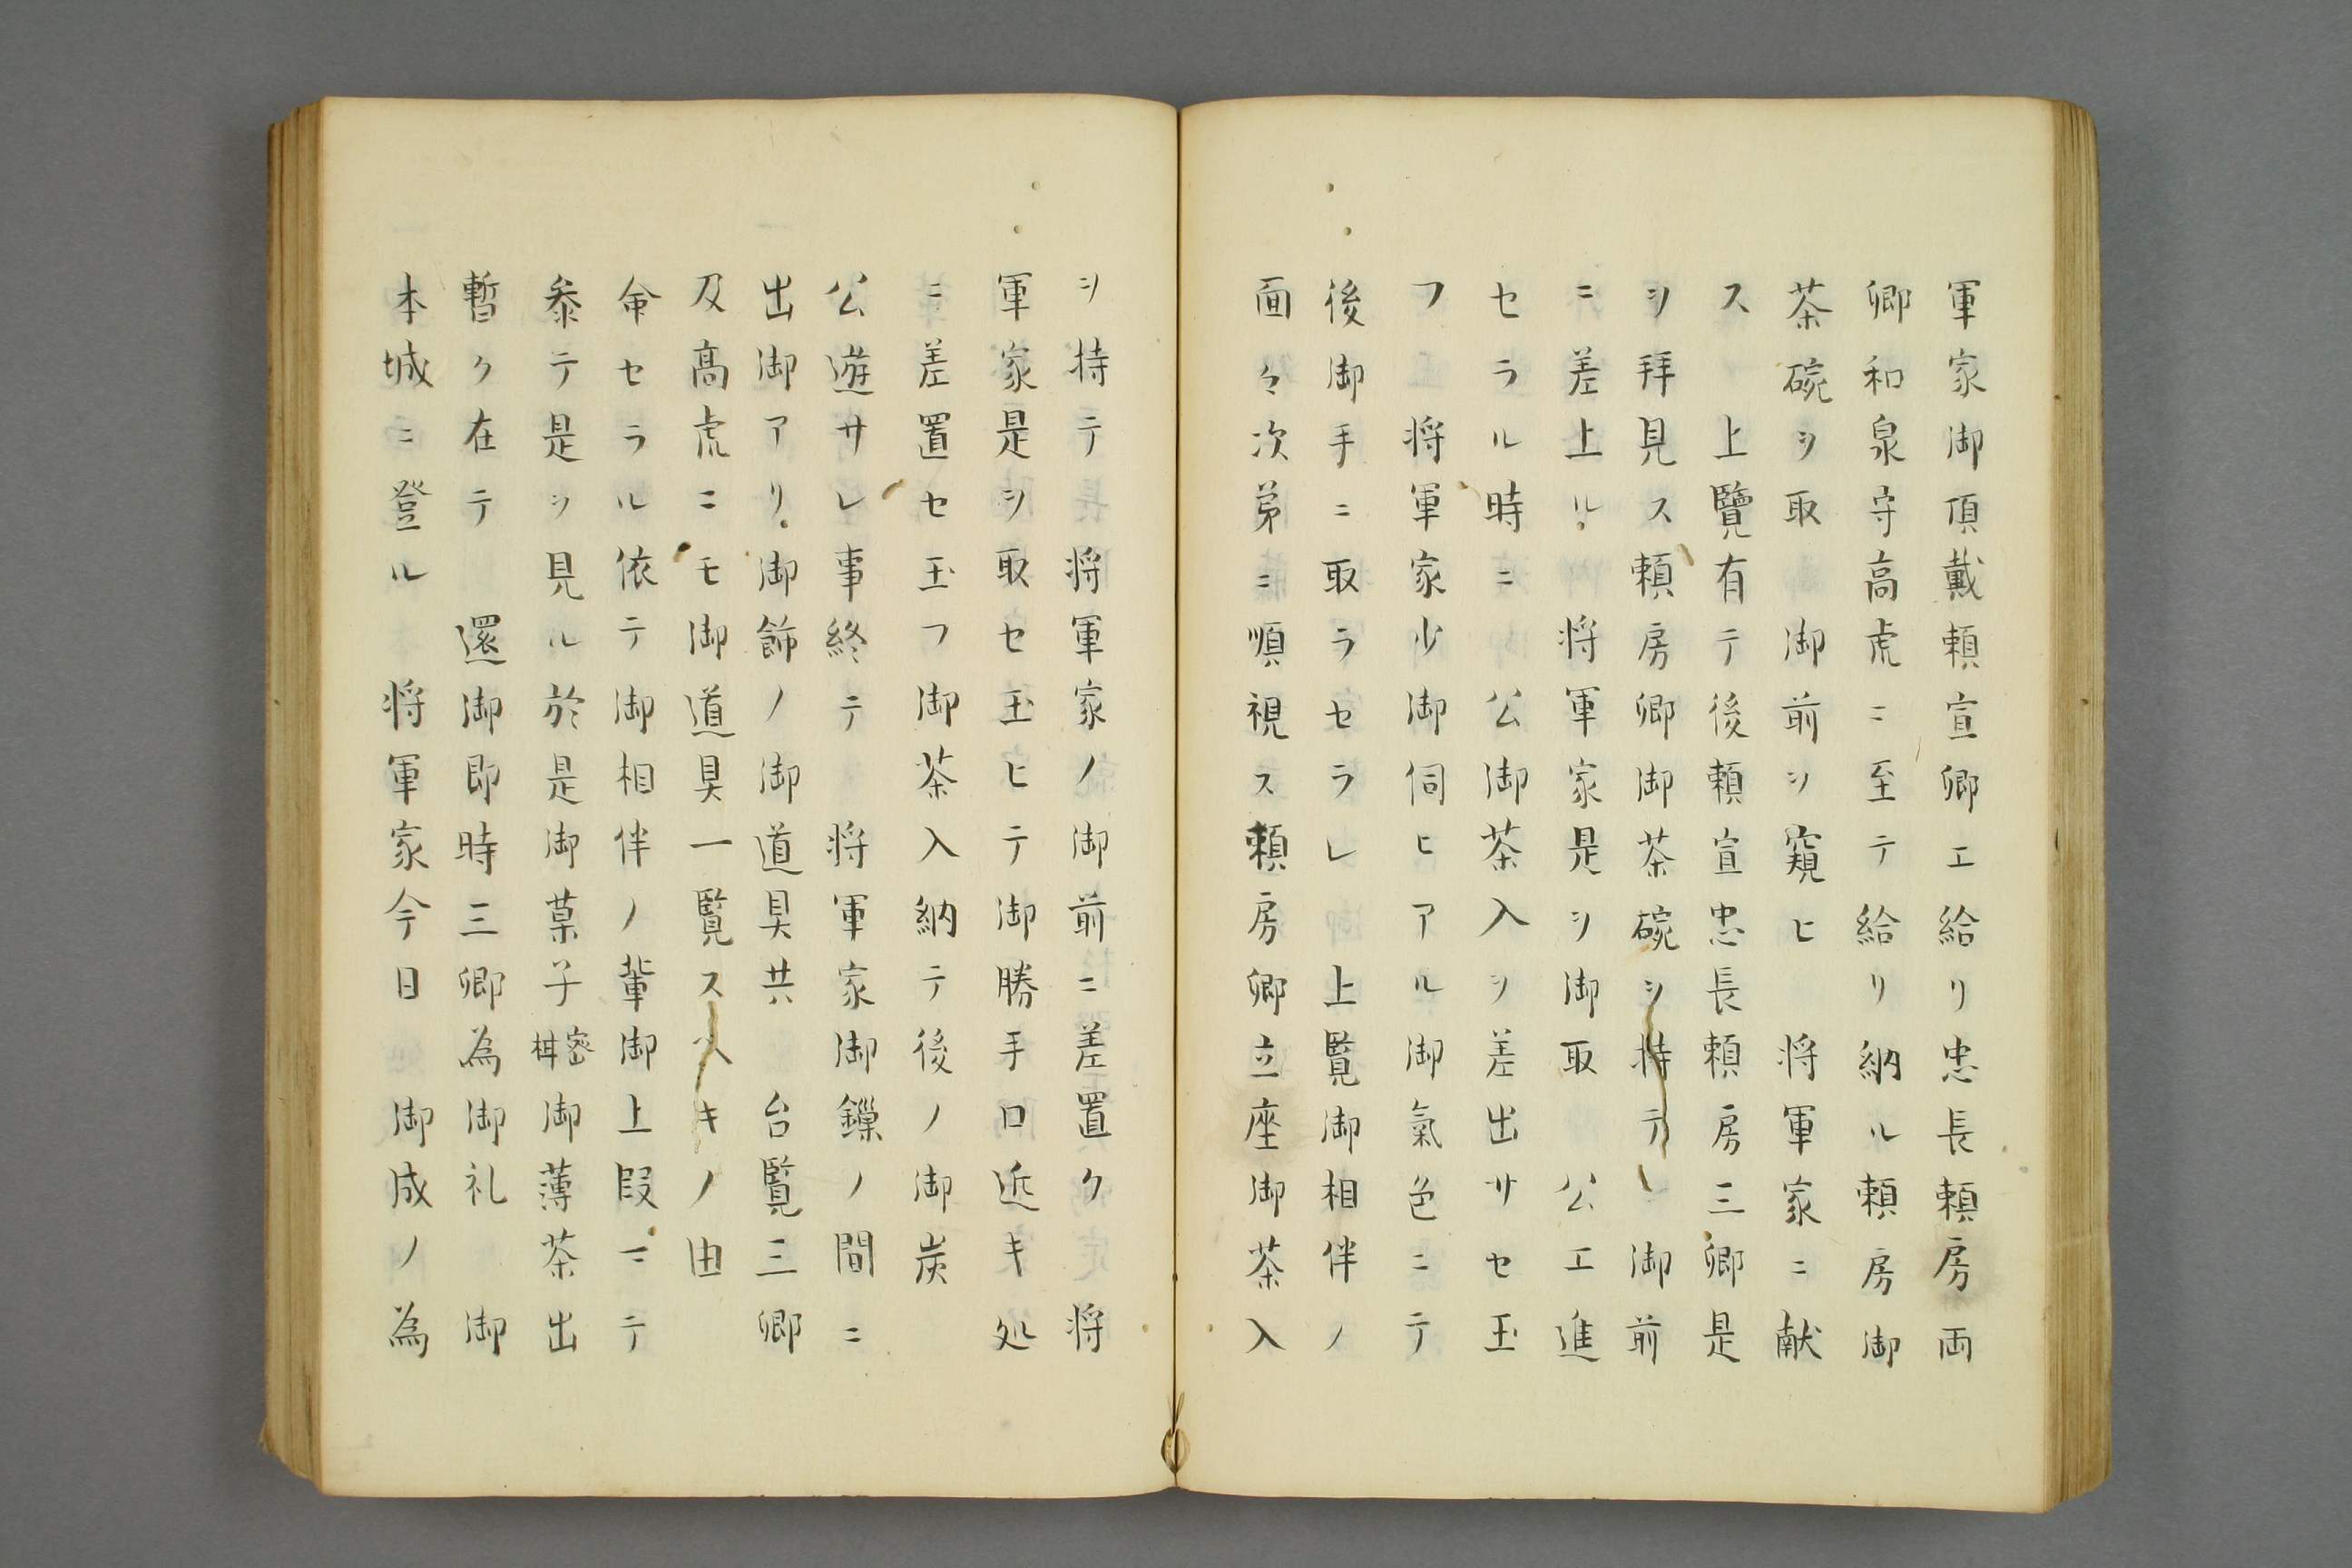 軍家御頂戴頼宣卿エ給リ忠長頼房両
卿和泉守高虎ニ至テ給リ納ル頼房御
茶碗ヲ取　御前ヲ窺ヒ　将軍家ニ献
ス　上覽有テ後頼宣忠長頼房三卿是
ヲ拝見ス頼房卿御茶碗ヲ持テ　御前
ニ差上ル　将軍家是ヲ御取　公エ進
セラル時ニ　公御茶入ヲ差出サセ玉
フ　将軍家少御伺ヒアル御氣色ニテ
後御手ニ取ラセラレ　上覧御相伴ノ
面々次第ニ順視ス頼房卿立座御茶入
ヲ持テ　将軍家ノ御前ニ差置ク　将
軍家是ヲ取セ玉ヒテ御勝手口近キ処
ニ差置セ玉フ御茶入納テ後ノ御炭
公遊サレ事終テ　将軍家御鏁ノ間ニ
出御アリ御飾ノ御道具共　台覧三卿
及高虎ニモ御道具一覧スヘキノ由
命セラル依テ御相伴ノ輩御上段ニテ
参テ是ヲ見ル於是御菓子蜜柑御薄茶出
暫ク在テ　還御即時三卿為御礼　御
本城ニ登ル　将軍家今日　御成ノ為